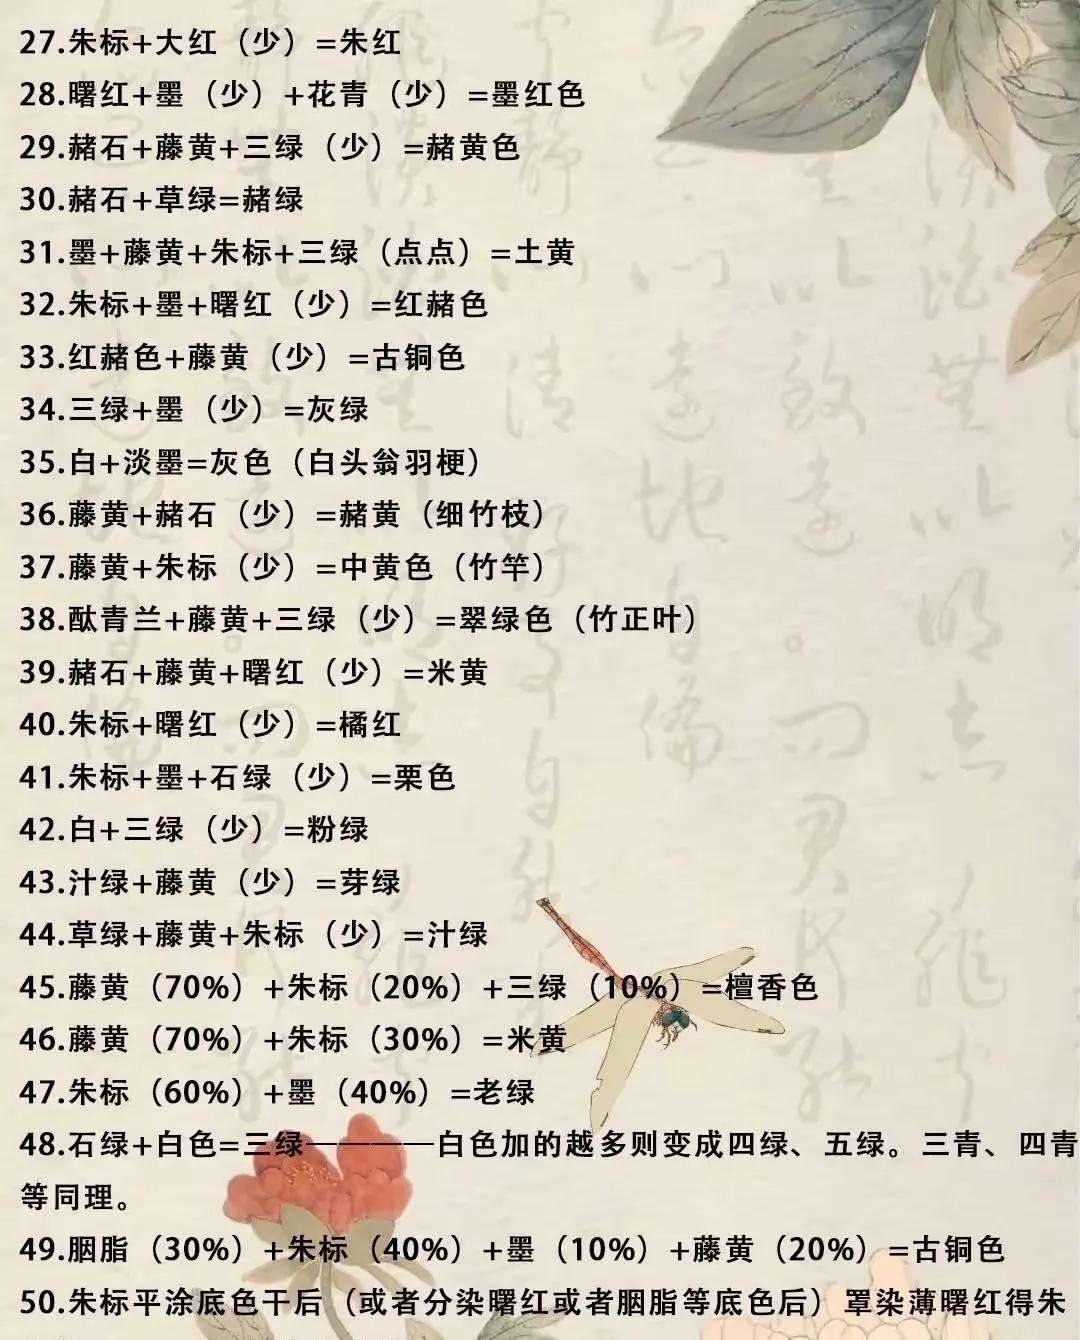 27.朱标+大红（少）=朱红
28.曙红+墨（少）+花青（少）=墨红色
29.赭石+藤黄+三绿（少）=赭黄色
30.赭石+草绿=赭绿
31.墨+藤黄+朱标+三绿（点点）=土黄
32.朱标+墨+曙红（少）=红赭色
33.红赭色+藤黄（少）=古铜色
34.三绿+墨（少）=灰绿
35.白+淡墨=灰色（白头翁羽梗）
36.藤黄+赭石（少）=赭黄（细竹枝）
37.藤黄+朱标（少）=中黄色（竹竿）
38.酞青兰+藤黄+三绿（少）=翠绿色（竹正叶）
39.赭石+藤黄+曙红（少）=米黄
40.朱标+曙红（少）=橘红
41.朱标+墨+石绿（少）=栗色
42.白+三绿（少）=粉绿
43.汁绿+藤黄（少）=芽绿
44.草绿+藤黄+朱标（少）=汁绿
45.藤黄（70%）+朱标（20%）+三绿（10%）=檀香色
46.藤黄（70%）+朱标（30%）=米黄
47.朱标（60%）+墨（40%）=老绿
48.石绿+白色=三绿————白色加的越多则变成四绿、五绿。三青、四青
等同理。
49.胭脂（30%）+朱标（40%）+墨（10%）+藤黄（20%）=古铜色
50.朱标平涂底色干后（或者分染曙红或者胭脂等底色后）罩染薄曙红得朱